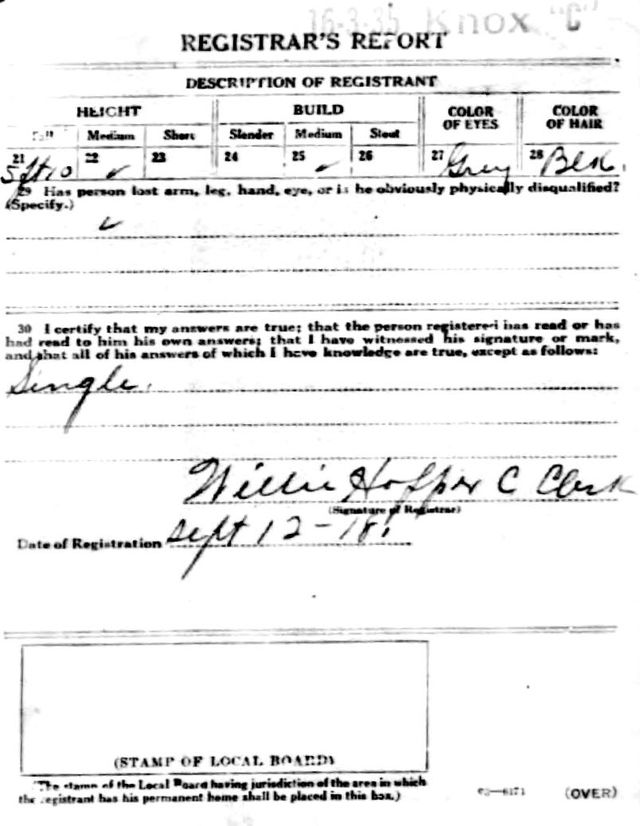 16-3-35 Knox "C"
REGISTRAR'S REPORT
DESCRIPTION OF REGISTRANT
HEIGHT BUILD COLOR OF EYES COLOR OF HAIR
Tall Medium Short Slender Medium Stout
21 22 23 24 25 26 27 28
5 ft 10 ✓ ✓ Grey Blk.
29 Has person lost arm, leg, hand, eye, or is he obviously physically disqualified?
(Specify.)
✓
30 I certify that my answers are true; that the person registered has read or has
had read to him his own answers; that I have witnessed his signature or mark,
and that all of his answers of which I have knowledge are true, except as follows:
Single.
Willie C Clerk
(Signature of Registrar)
Date of Registration Sept 12-18.
(STAMP OF LOCAL BOARD)
(The stamp of the Local Board having jurisdiction of the area in which
the registrant has his permanent home shall be placed in this box.)
(OVER)